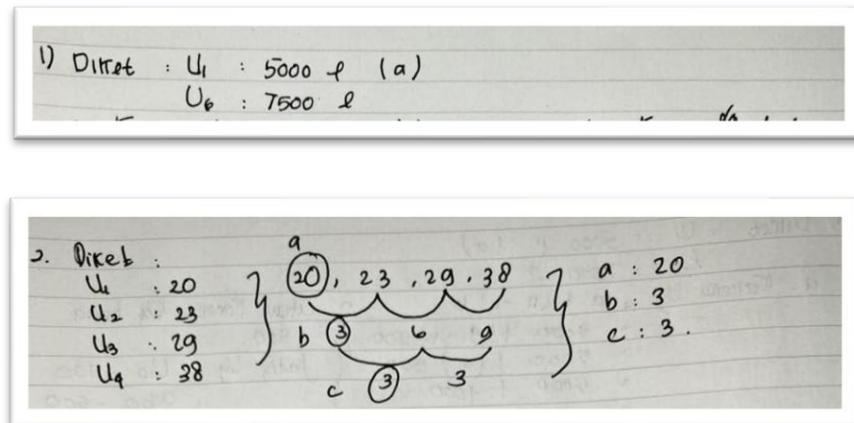 1) Diket : U₁ : 5000 l (a)
U₆ : 7500 l
2. Diket :
U₁ : 20
U₂ : 23
U₃ : 29
U₄ : 38
a
20, 23, 29, 38
b 3 6 9
c 3 3
a : 20
b : 3
c : 3.